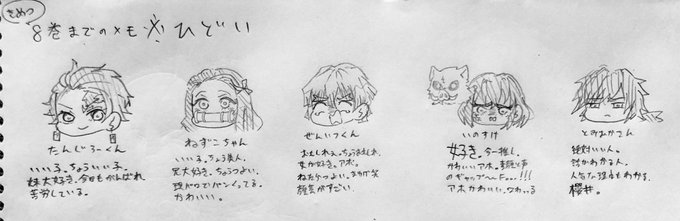 きめつ
8巻までのメモ ※ひどい
たんじろーくん
いいこ。ちょういい子。
妹大好き。今日もがんばれ
苦労している。
ねずこちゃん
いいこ。ちょう美人。
兄大好き。ちょうつよい。
かわいい。
ぜんいつくん
おもしれぇ。ちょうおもしれぇ
女が好き。アホ。
ねたらつよい。
顔芸がすごい
いのすけ
好き。今一推し。
かわいいアホ。素顔と声
のギャップ〜〜Foo!!!
アホかわいい。
とみおかさん
絶対いい人。
分かるわかる人。
人気な理由もわかる。
櫻井。